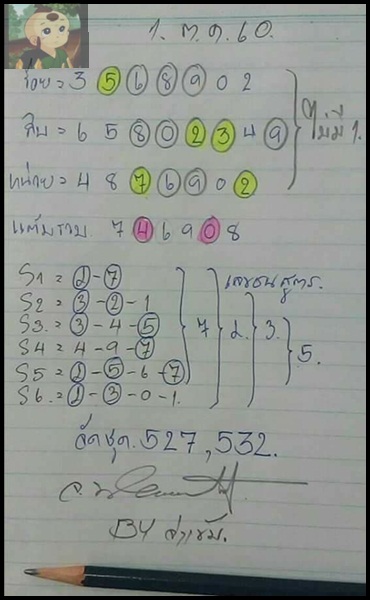 1. ต.ค. 60.
ร้อย = 3 5 6 8 9 0 2
สิบ = 6 5 8 0 2 3 4 9
ไม่มี 1.
หน่วย = 4 8 7 6 9 0 2
แต้มรวม. 7 4 6 9 0 8
S1 = 2 - 7
เลขชนสูตร.
S2 = 3 - 2 - 1
S3 = 3 - 4 - 5
7 2. 3.
S4 = 4 - 9 - 7
5.
S5 = 2 - 5 - 6 - 7
S6. 2 - 3 - 0 - 1.
จัดชุด. 527, 532.
BY